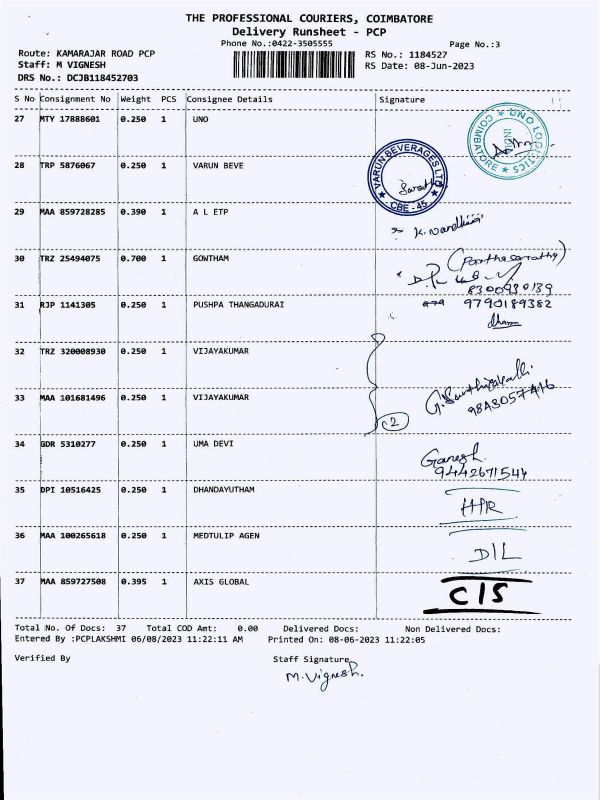 THE PROFESSIONAL COURIERS, COIMBATORE
Delivery Runsheet - PCP
Phone No.:0422-3505555
Page No.:3
Route: KAMARAJAR ROAD PCP
RS No.: 1184527
Staff: M VIGNESH
RS Date: 08-Jun-2023
DRS No.: DCJB118452703
S No Consignment No Weight PCS Consignee Details Signature
27 MTY 17888601 0.250 1 UNO
UNO LOGISTICS COIMBATORE
28 TRP 5876067 0.250 1 VARUN BEVE
VARUN BEVERAGES LTD CBE - 45
29 MAA 859728285 0.390 1 A L ETP
30 TRZ 25494075 0.700 1 GOWTHAM
(Parthasarathy)
8300930139
31 RJP 1141305 0.250 1 PUSHPA THANGADURAI
9790189382
32 TRZ 320008930 0.250 1 VIJAYAKUMAR
33 MAA 101681496 0.250 1 VIJAYAKUMAR
9843057416
2
34 GDR 5310277 0.250 1 UMA DEVI
Ganesh
9442671544
35 DPI 10516425 0.250 1 DHANDAYUTHAM
36 MAA 100265618 0.250 1 MEDTULIP AGEN
DIL
37 MAA 859727508 0.395 1 AXIS GLOBAL
C/S
Total No. Of Docs: 37 Total COD Amt: 0.00 Delivered Docs: Non Delivered Docs:
Entered By :PCPLAKSHMI 06/08/2023 11:22:11 AM Printed On: 08-06-2023 11:22:05
Verified By Staff Signature
M. Vignesh.